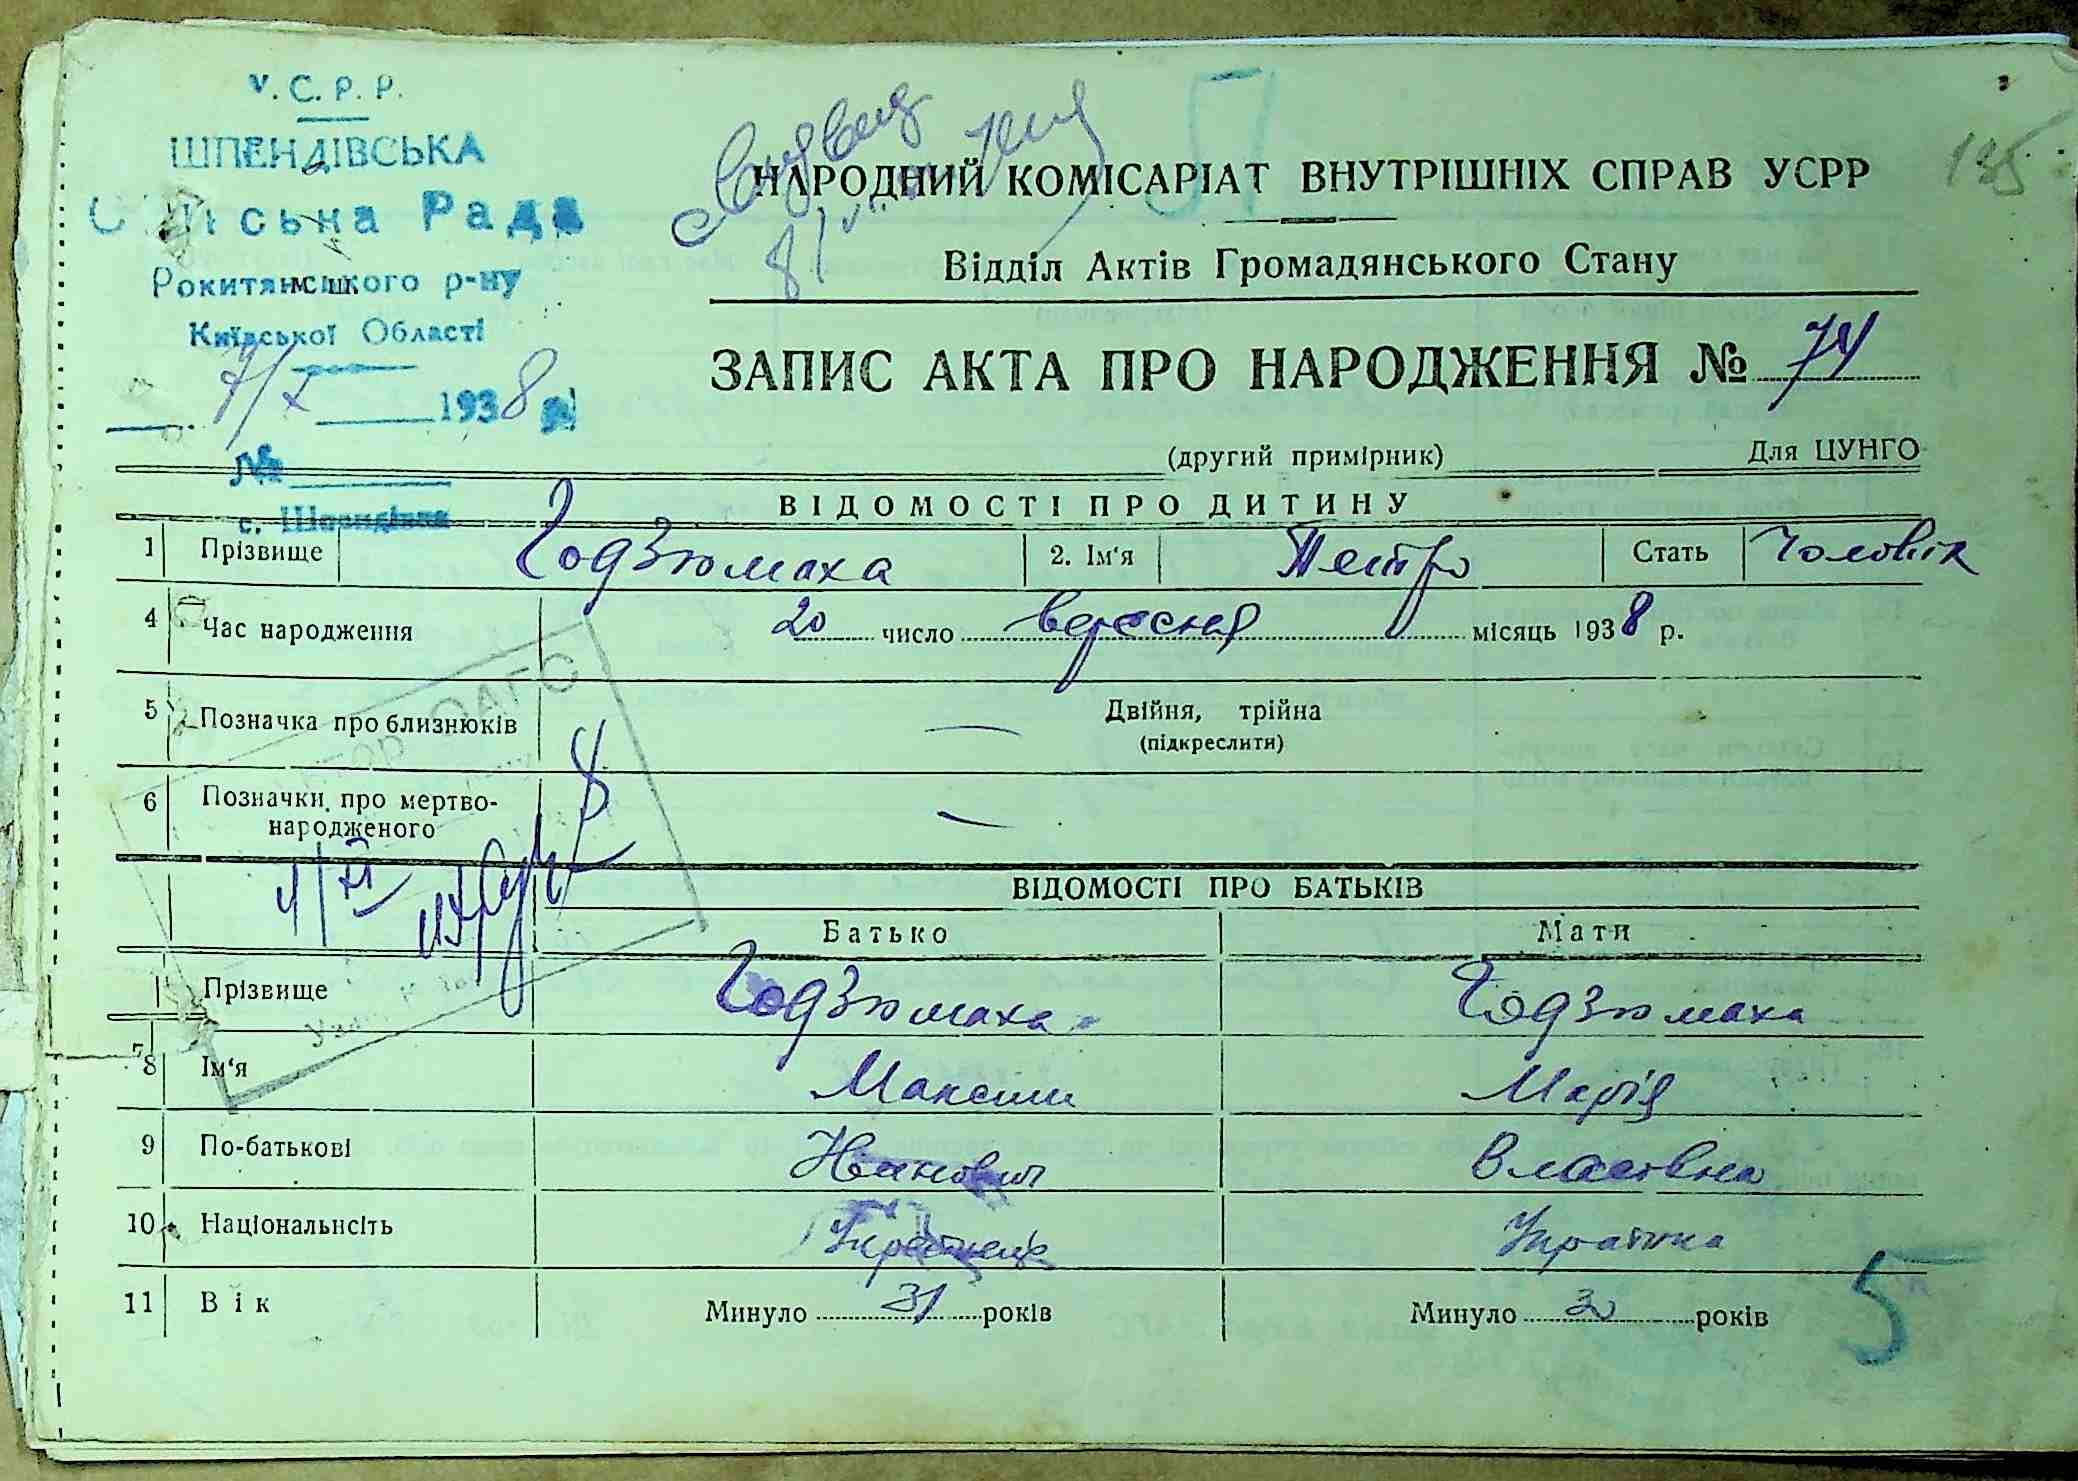 У. С. Р. Р.
ШПЕНДІВСЬКА
Сільська Рада
Рокитянського р-ну
Київської Області
7/X 1938 р.
№
с. Шпендівка
135
НАРОДНИЙ КОМІСАРІАТ ВНУТРІШНІХ СПРАВ УСРР
Відділ Актів Громадянського Стану
ЗАПИС АКТА ПРО НАРОДЖЕННЯ № 74
(другий примірник) Для ЦУНГО
ВІДОМОСТІ ПРО ДИТИНУ
1 Прізвище Годзюмаха 2. Ім'я Петро Стать Чоловік
4 Час народження 20 число вересня місяць 1938 р.
5 Позначка про близнюків — Двійня, трійна
(підкреслити)
6 Позначки про мертво-
народженого —
ВІДОМОСТІ ПРО БАТЬКІВ
Батько Мати
Прізвище Годзюмаха Годзюмаха
7
8 Ім'я Максим Марія
9 По-батькові Іванович Власовна
10 Національнсіть Українець Українка
11 Вік Минуло 31 років Минуло 30 років
5